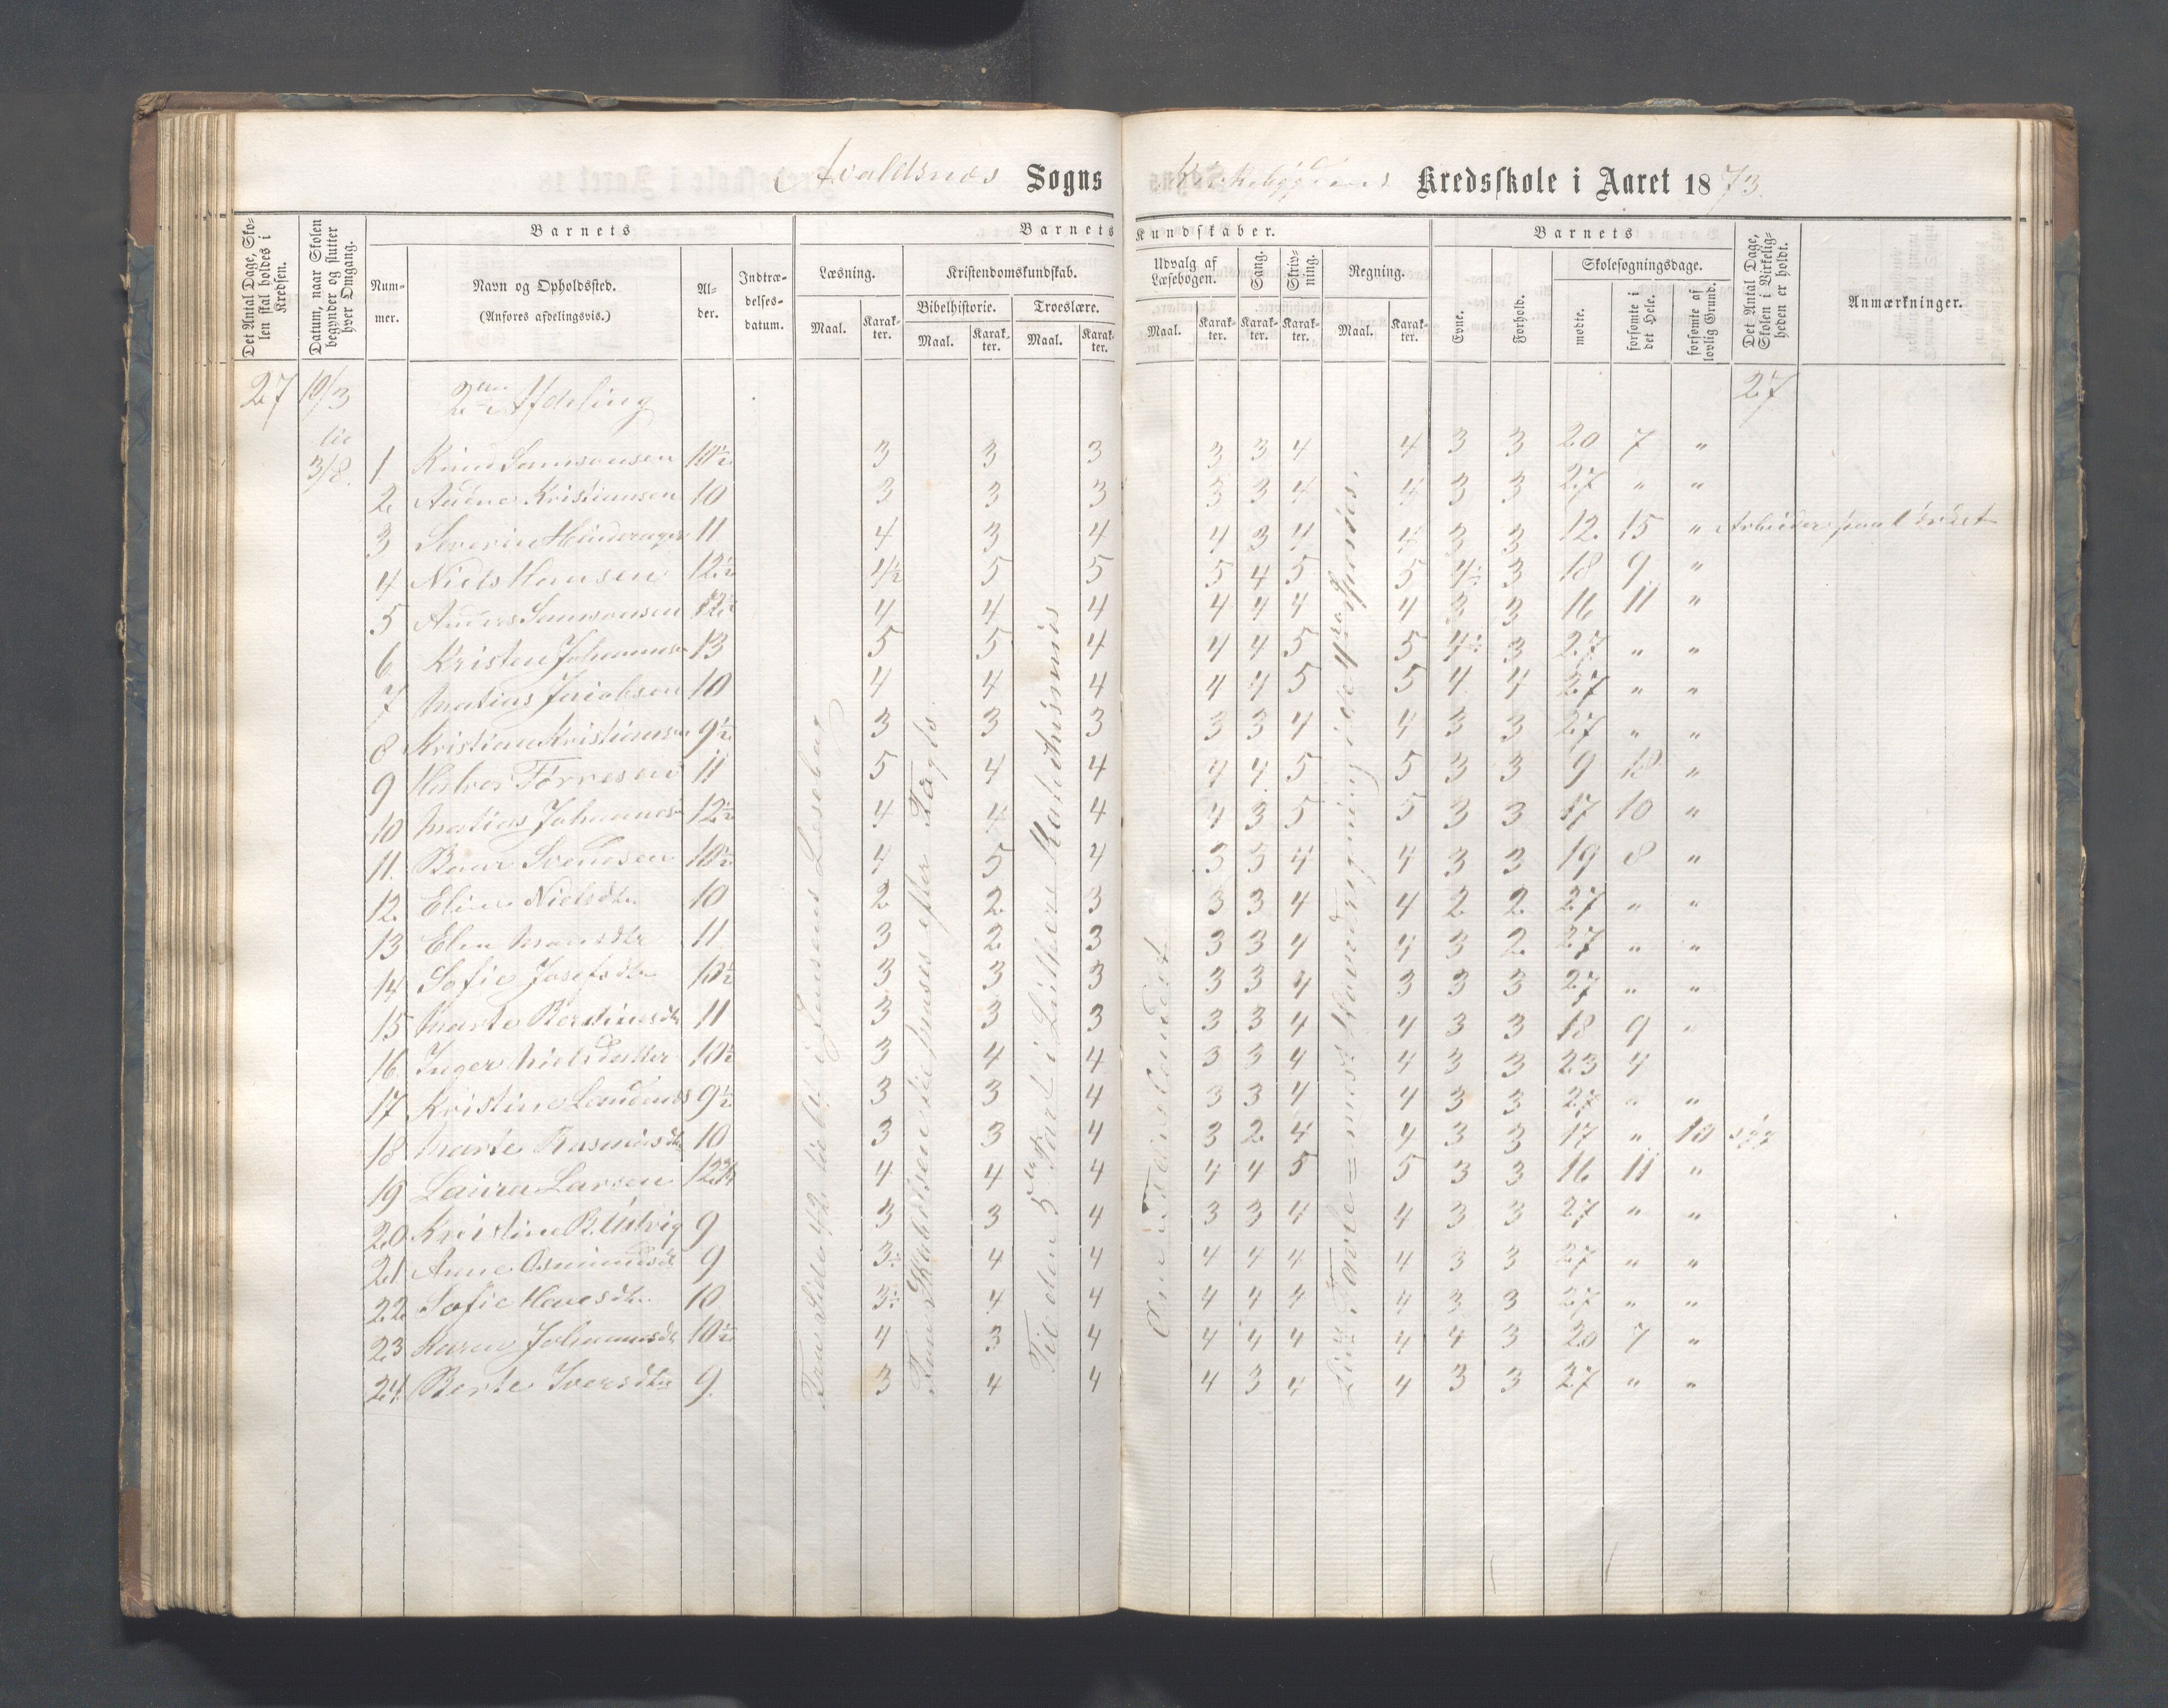 Avaldsnes Sogns Kirkebygdens Kredsskole i Aaret 1873.
Det Antal Dage, Skolen skal holdes i Kredsen.
Datum, naar Skolen begynder og slutter hver Omgang.
Barnets
Nummer.
Navn og Opholdssted.
(Anføres afdelingsvis.)
Alder.
Indtrædelsesdatum.
Barnets Kundskaber.
Læsning.
Maal. Karakter.
Kristendomskundskab.
Bibelhistorie. Troeslære.
Maal. Karakter. Maal. Karakter.
Udvalg af Læsebogen.
Maal. Karakter.
Sang. Karakter.
Skrivning. Karakter.
Regning.
Maal. Karakter.
Barnets
Evne. Forhold.
Skolesøgningsdage.
mødte. forsømte i det Hele. forsømte af lovlig Grund.
Det Antal Dage, Skolen i Virkeligheden er holdt.
Anmærkninger.
27 19/3 2den Afdeling 27
til
3/8.
1 Knud Samsonsen 10½ 3 3 3 3 3 4 4 3 3 20 7 "
2 Kristiansen 10 3 3 3 3 3 4 4 3 3 27 " "
3 Severin 11 4 3 4 4 3 4 4 3 3 12 15 " Arbeider paa
4 Niels Hansen 12½ 4½ 5 5 5 4 5 5 4÷ 3 18 9 "
5 Anders Samsonsen 12½ 4 4 4 4 4 4 4 3 3 16 11 "
6 Kristen Johannes 13 5 5 4 4 4 5 5 4÷ 3 27 " "
7 Matias Jacobsen 10 4 4 4 4 4 5 5 4 4 27 " "
8 Kristian Kristiansen 9½ 3 3 3 3 3 4 4 3 3 27 " "
9 Halvor Tørresen 11 5 4 4 4 4 5 5 3 3 9 18 "
10 Matias Johannes 12½ 4 4 4 4 3 5 5 3 3 17 10 "
11. Svendsen 10½ 4 5 4 5 5 4 4 3 3 19 8 "
12. Nielsdtr. 10 2 2 3 3 3 4 4 2 2 27 " "
13 Elen Monsdtr 11 3 2 3 3 3 4 4 3 2 27 " "
14 Sofie Josefsdtr 10½ 3 3 3 3 3 4 3 3 3 27 " "
15 Marte 11 3 3 3 3 3 4 4 3 3 18 9 "
16 Inger Nielsdatter 10½ 3 4 4 3 3 4 4 3 3 23 4
17 Kristine 9½ 3 3 4 3 3 4 4 3 3 27 " "
18 Marte Rasmusdtr 10 3 3 4 3 2 4 4 3 3 17 " 10 syg
19 Laura Larsen 12¾ 4 4 4 4 4 5 5 3 3 16 11 "
20 Kristine 9 3 3 4 3 3 4 4 3 3 27 " "
21 Anne Osmundsdtr 9 3÷ 4 4 4 4 4 4 3 3 27 " "
22 Sofie Hansdtr. 10 3÷ 4 4 4 4 4 4 3 3 27 " "
23 Karen Johannesdtr 10½ 4 3 4 4 4 4 4 4 3 20 7 "
24. Berte Iversdtr 9. 3 4 4 4 3 4 4 3 3 27 " "
Fra Side 42 til i Jensens Læsebog
Fra Skabelsen til Moses efter Vogts.
Til den 5te Part i Luthers Katekismus
Om Landet